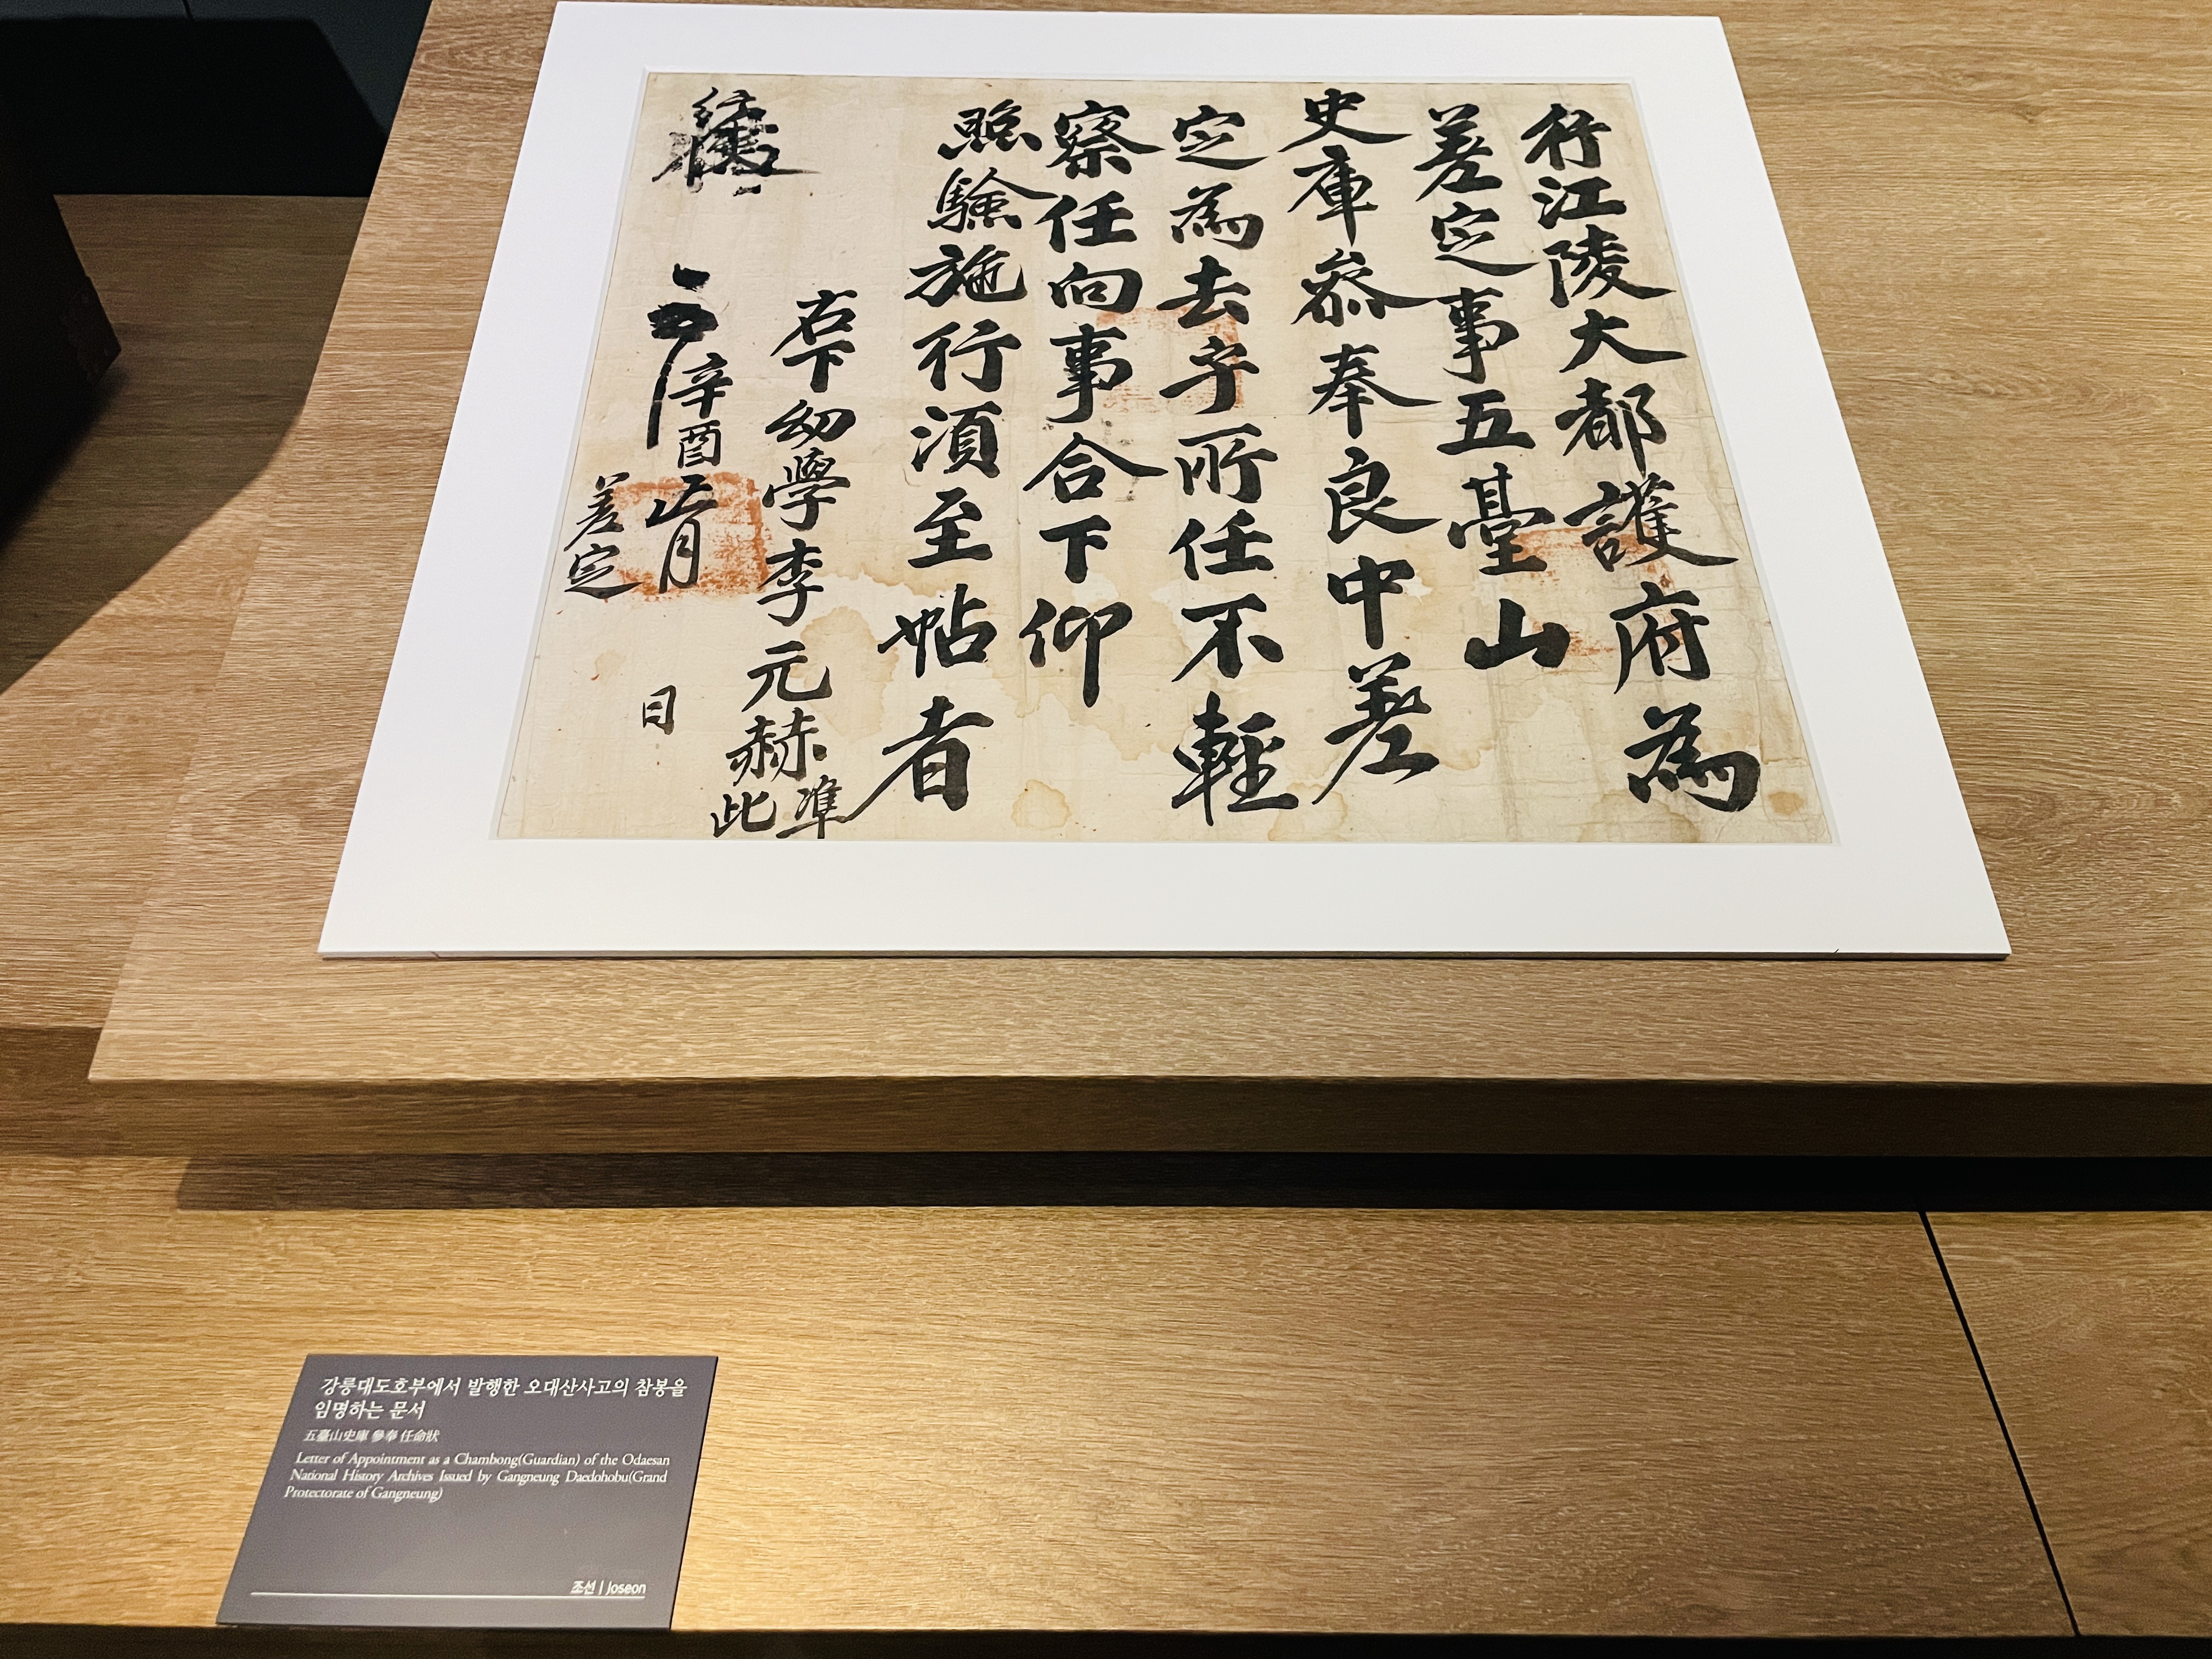 行江陵大都護府為
差定事五臺山
史庫叅奉良中差
定為去乎所任不輕
察任向事合下仰
照驗施行須至帖者
右下幼學李元赫 準此
辛酉正月 日
差定
강릉대도호부에서 발행한 오대산사고의 참봉을
임명하는 문서
五臺山史庫 參奉 任命狀
Letter of Appointment as a Chambong(Guardian) of the Odaesan
National History Archives Issued by Gangneung Daedohobu(Grand
Protectorate of Gangneung)
조선 | Joseon